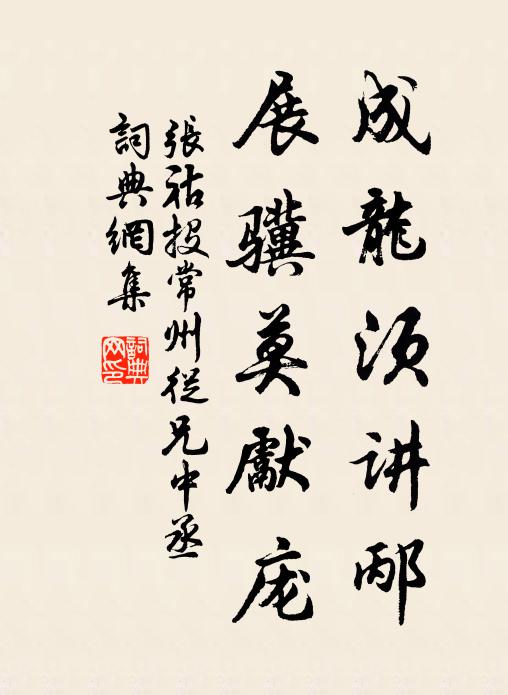 成龍须讲邴
展骥莫獻庞
張祜投常州從兄中丞
詞典網集
詞典网印